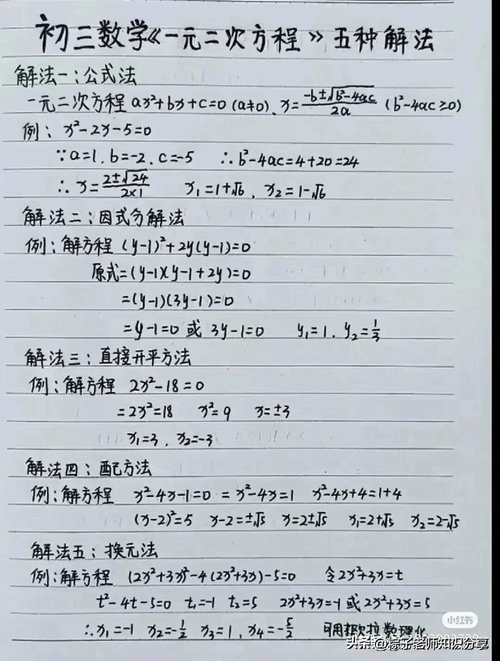 初三数学《一元二次方程》五种解法
解法一:公式法
一元二次方程 ax²+bx+c=0 (a≠0). x=(-b±√(b²-4ac))/2a (b²-4ac≥0)
例: x²-2x-5=0
∵a=1. b=-2. c=-5 ∴b²-4ac=4+20=24
∴x=(2±√24)/(2×1) x₁=1+√6. x₂=1-√6
解法二:因式分解法
例:解方程 (y-1)²+2y(y-1)=0
原式=(y-1)(y-1+2y)=0
=(y-1)(3y-1)=0
=y-1=0 或 3y-1=0 y₁=1. y₂=1/3
解法三:直接开平方法
例:解方程 2x²-18=0
=2x²=18 x²=9 x=±3
x₁=3. x₂=-3
解法四:配方法
例:解方程 x²-4x-1=0 = x²-4x=1 x²-4x+4=1+4
(x-2)²=5 x-2=±√5 x=2±√5 x₁=2+√5 x₂=2-√5
解法五:换元法
例:解方程 (2x²+3x)²-4(2x²+3x)-5=0 令2x²+3x=t
t²-4t-5=0 t₁=-1 t₂=5 2x²+3x=-1 或 2x²+3x=5
∴x₁=-1 x₂=-1/2 x₃=1. x₄=-5/2
小红书
头条@棕子老师知识分享